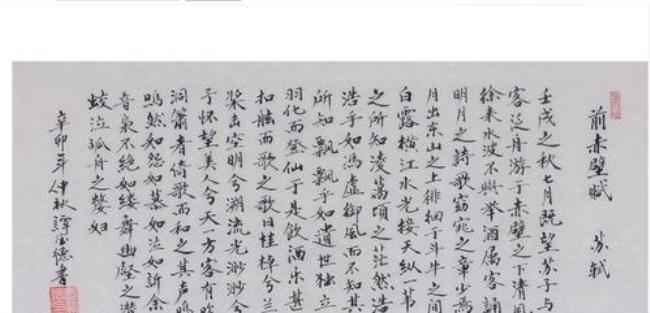 前赤壁賦 苏轼
壬戌之秋七月既望苏子与
客泛舟游于赤壁之下清風
徐来水波不興举酒属客誦
明月之詩歌窈窕之章少焉
月出东山之上徘徊于斗牛之间
白露横江水光接天纵一苇
之所知凌萬頃之茫然浩
浩乎如馮虚御風而不知其
所知飘飘乎如遺世独立
羽化而登仙于是飲酒乐甚
扣舷而歌之歌曰桂棹兮兰
桨击空明兮溯流光渺渺兮
予怀望美人兮天一方客有吹
洞簫者倚歌而和之其声鸣
鸣然如怨如慕如泣如訴余
音袅不绝如缕舞幽壑之潜
蛟泣孤舟之嫠妇
辛卯年仲秋譚德書